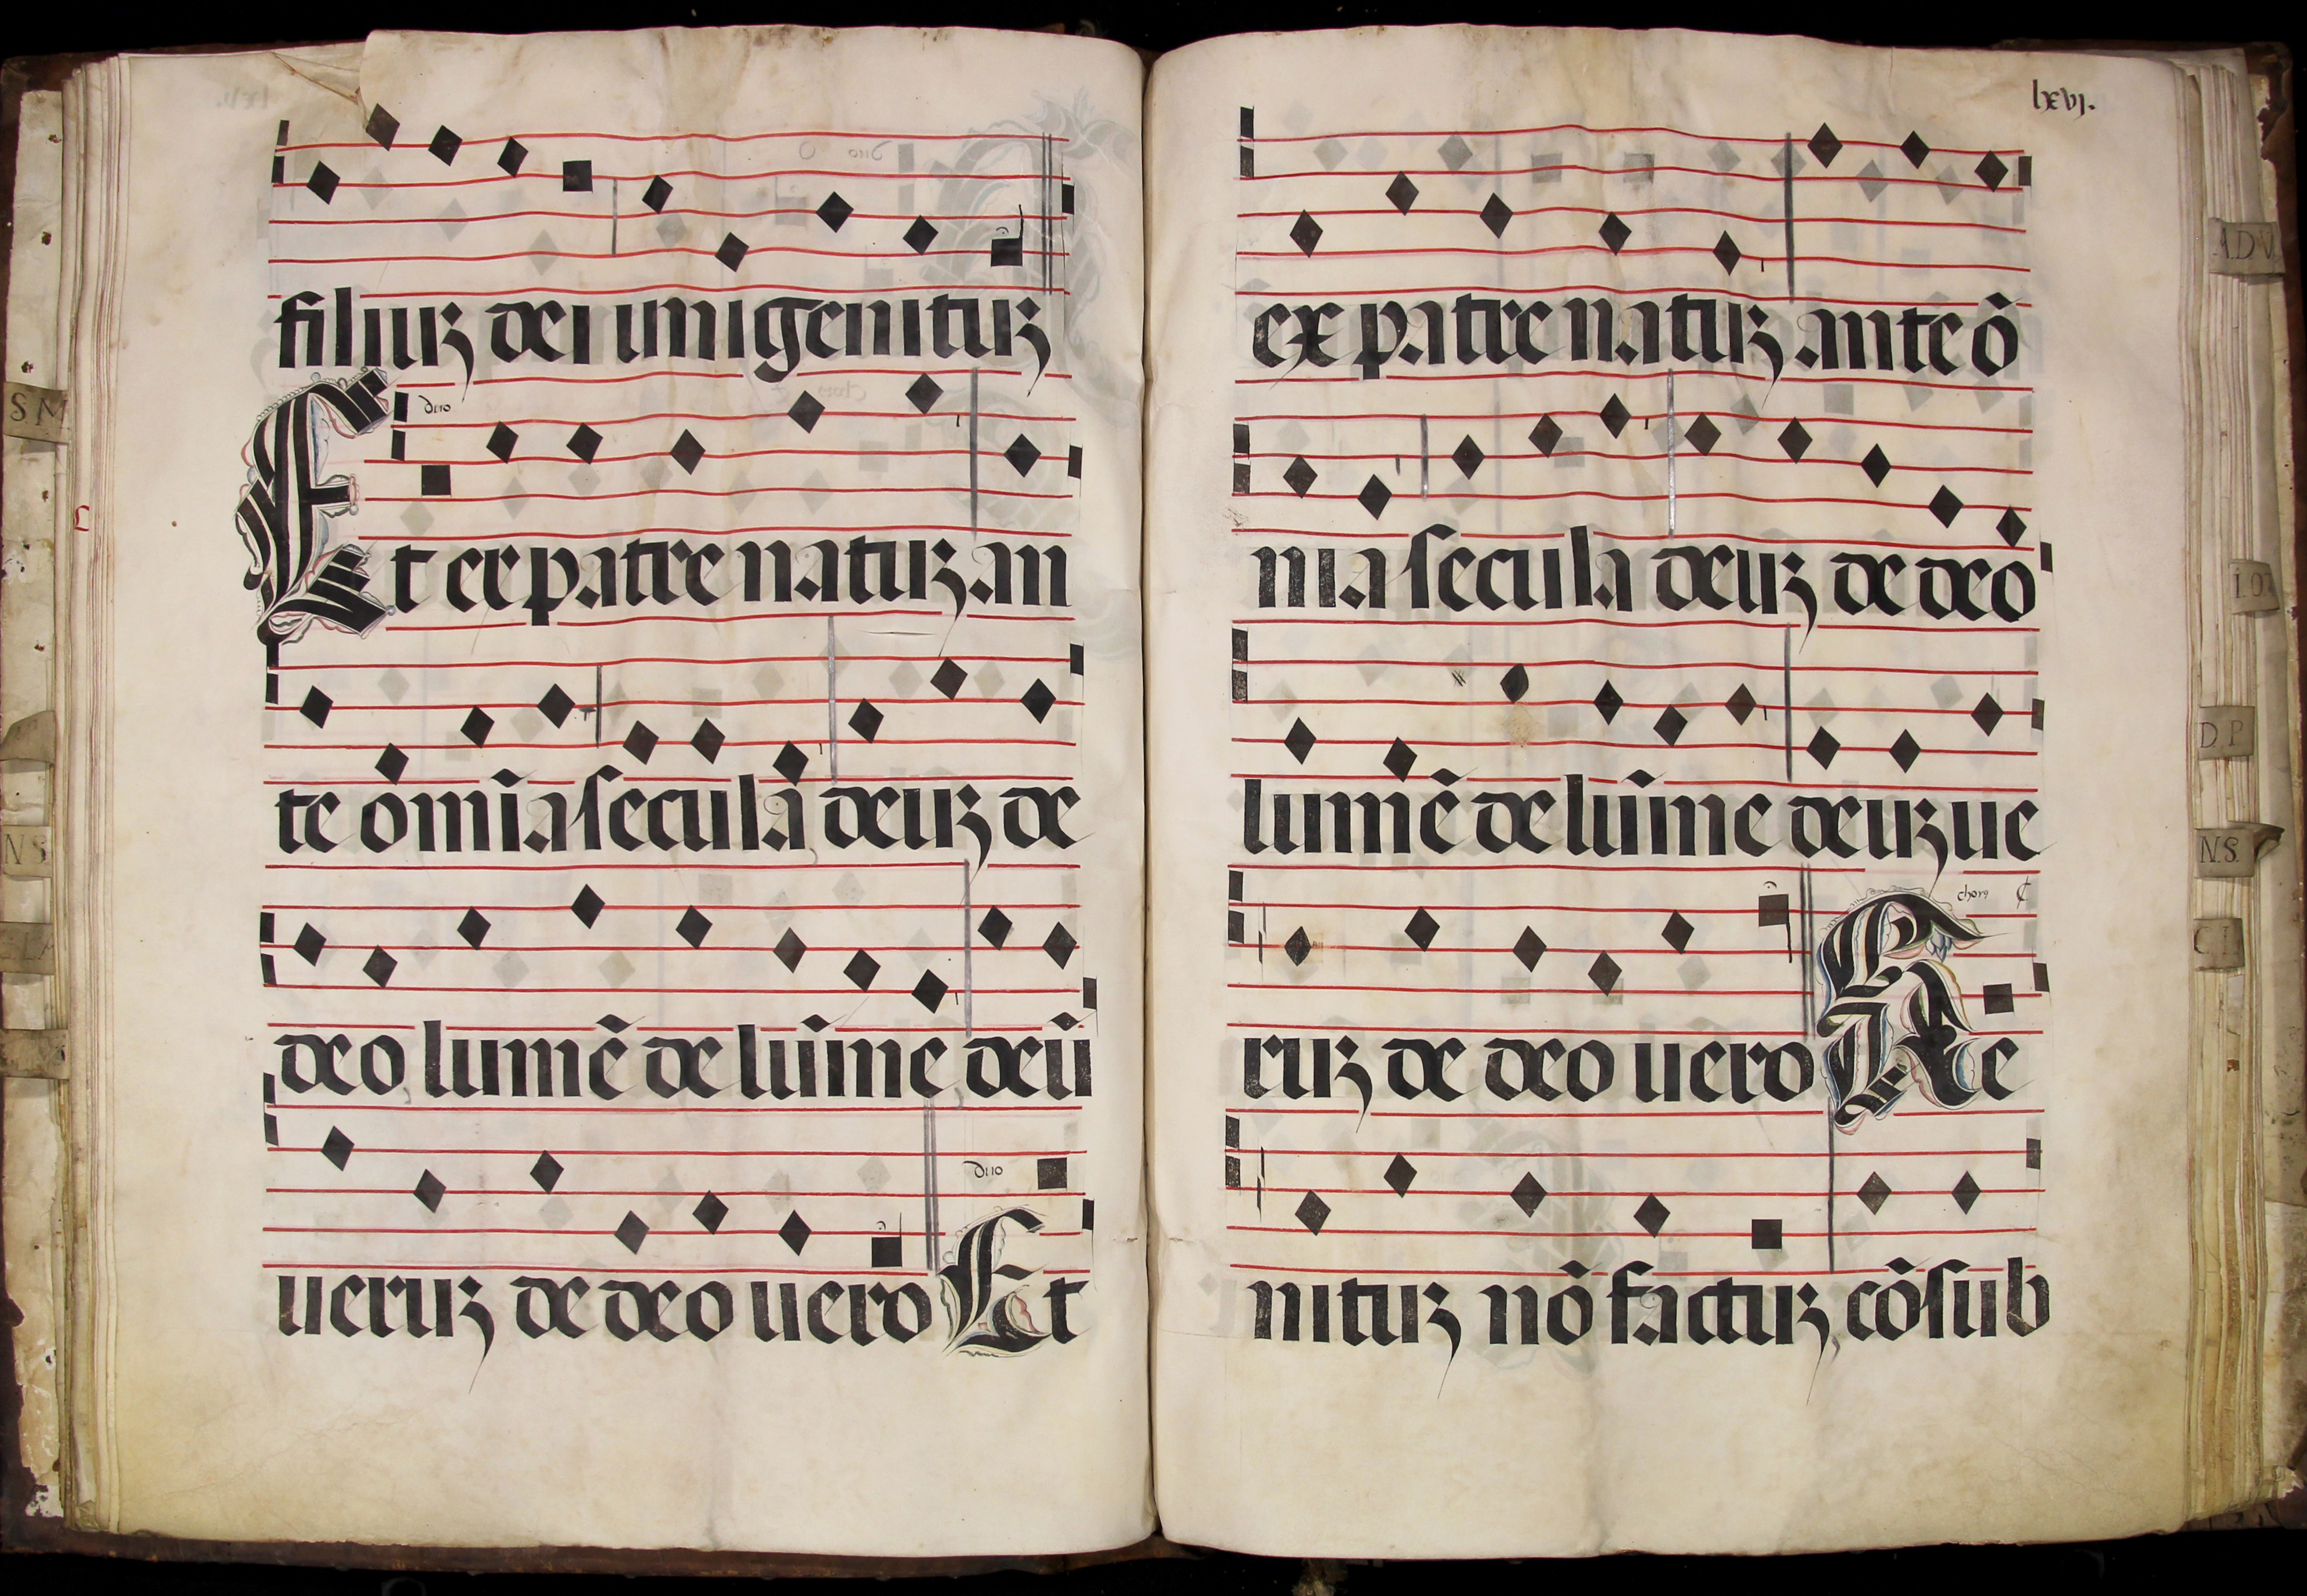 filiuʒ dei unigenituʒ
duo
Et ex patre natuʒ an
te om̄ia secula deuʒ de
deo lumē de lum̄ine deū
duo
ueruʒ de deo uero Et
lxvj.
ex patre natuʒ ante õ
nia secula deuʒ de deo
lumē de lum̄ine deuʒ ue
chorꝯ ₵
ruʒ de deo uero Ge
nituʒ nõ factuʒ cõsub
S M
N S
A.D.V
D.P
N.S.
C.I